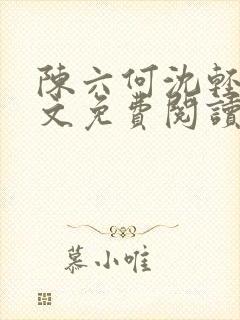 陳六何沈輕
文免費閱讀
慕小唯